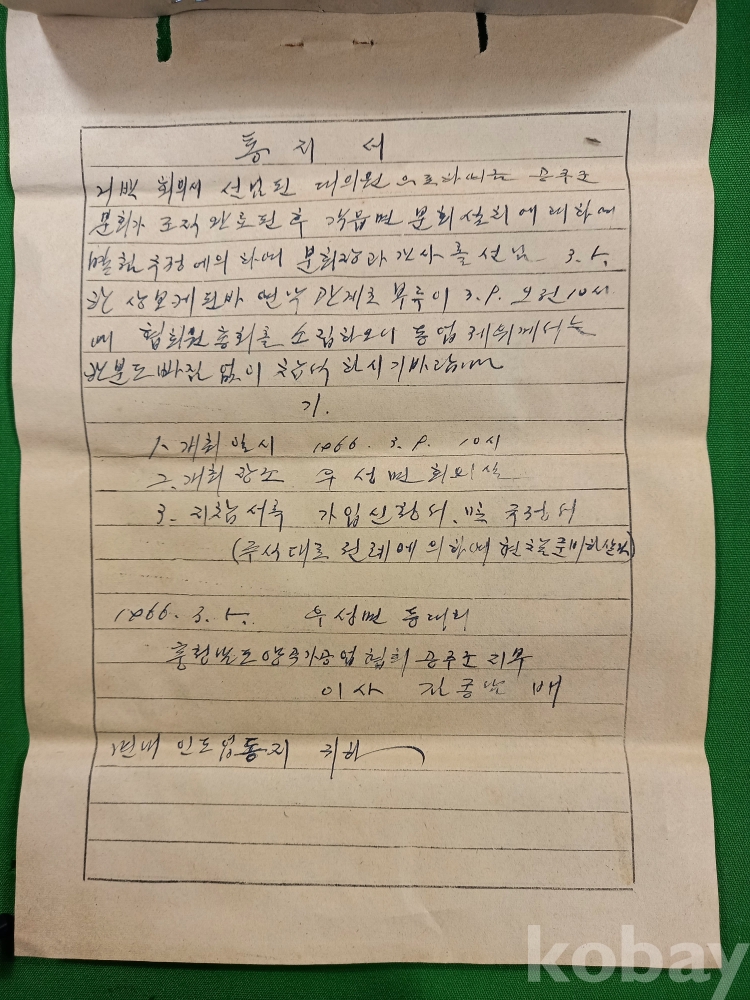 통지서
회의서 선임된 대의원 으로하여금 공주군
분회가 조직완료된 후 각읍면 분회설치에 대하여
에의 하여 분회장과 간사를 선님 3.5.
한 상보게된바 연낙 관계로 부류이 3.9. 오전10시
에 협회원 총회를 소집하오니 동업 제위께서는
한분도 빠짐 없이 참석 하시기바랍니다
기.
1. 개최 일시 1966. 3. 9. 10시
2. 개최 장소 우성면 회의실
3. 지참서류 가입신청서.
(주식대로 전례에 의하여 현차를 준비하실것)
1966. 3. 5. 우성면 동대리
충청남도양곡가공업협회 공주군 지부
이사 김종남 배
면내 인도업동지 귀하
kobay